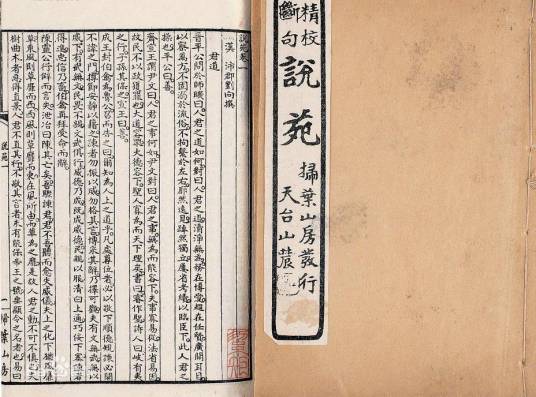 精校
斷句
說苑
掃葉山房發行
天台山農
說苑卷一
漢 沛郡劉向撰
君道
晉平公問於師曠曰人君之道如何對曰人君之道清淨無為務在博愛趨在任賢廣開耳目
以察萬方不固溺於流俗不拘繫於左右廓然遠見踔然獨立屢省考績以臨臣下此人君之
操也平公曰善
齊宣王謂尹文曰人君之事何如尹文對曰人君之事無為而能容下夫事寡易從法省易因
故民不以政獲罪也大道容眾大德容下聖人寡為而天下理矣書曰睿作聖詩人曰岐有夷
之行子孫其保之宣王曰善
成王封伯禽為魯公召而告之曰爾知為人上之道乎凡處尊位者必以敬下順德規諫必開
不諱之門撙節安靜以藉之諫者勿振以威勿格其言博采其辭乃擇可觀夫有文無武無以
威下有武無文民畏不親文武俱行威德乃成既成威德民親以服清白上通巧佞下塞諫者
得進忠信乃畜伯禽再拜受命而辭
陳靈公行僻而言失泄冶曰陳其亡矣吾驟諫君君不吾聽而愈失威儀夫上之化下猶風靡
草東風則草靡而西西風則草靡而東在風所由而草為之靡是故人君之動不可不慎也夫
樹曲木者惡得直景人君不直其行不敬其言者未有能保帝王之號垂顯令之名者也易曰
說苑一
一 掃葉山房